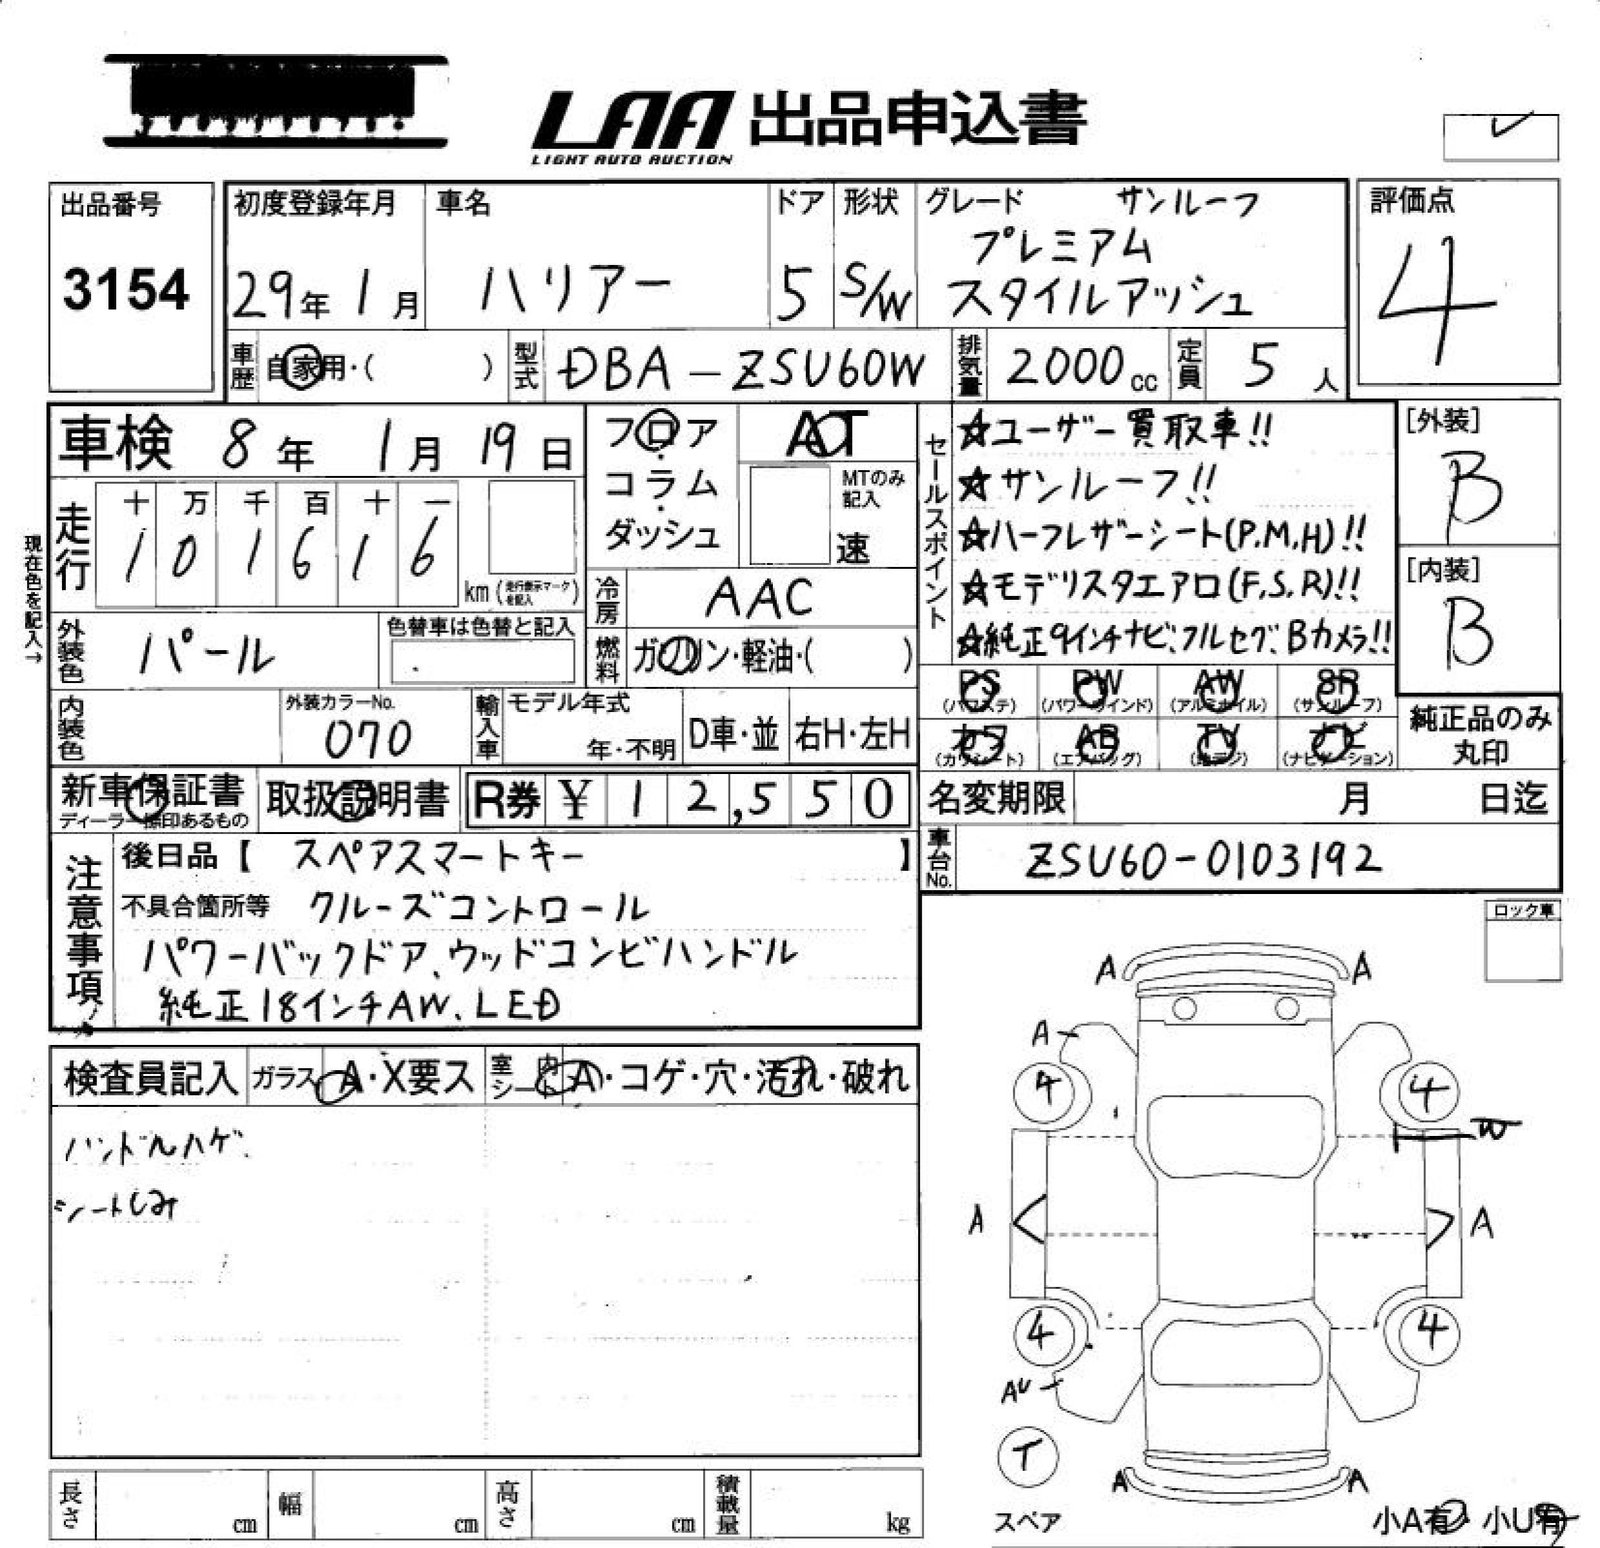 LAA 出品申込書
LIGHT AUTO AUCTION
出品番号
3154
初度登録年月
29年 1月
車名
ハリアー
ドア
5
形状
S/W
グレード サンルーフ
プレミアム
スタイルアッシュ
評価点
4
車歴 自家用・( )
型式 DBA-ZSU60W
排気量 2000cc
定員 5人
車検 8年 1月 19日
走行
十 万 千 百 十 一
1 0 1 6 1 6
km(走行表示マークを記入)
現在色を記入→
フロア
コラム
ダッシュ
AT
MTのみ記入
速
冷房 AAC
燃料 ガソリン・軽油・( )
セールスポイント
☆ユーザー買取車!!
☆サンルーフ!!
☆ハーフレザーシート(P,M,H)!!
☆モデリスタエアロ(F,S,R)!!
☆純正9インチナビ、フルセグ、Bカメラ!!
[外装]
B
[内装]
B
外装色 パール
色替車は色替と記入
内装色
外装カラーNo.
070
輸入車
モデル年式
年・不明
D車・並
右H・左H
PS (パワステ)
PW (パワーウインド)
AW (アルミホイル)
SR (サンルーフ)
カワ (カワシート)
AB (エアバッグ)
TV (地デジ)
ナビ (ナビゲーション)
純正品のみ
丸印
新車保証書
ディーラー標印あるもの
取扱説明書
R券 ¥12,550
名変期限 月 日迄
車台No. ZSU60-0103192
注意事項
後日品【 スペアスマートキー 】
不具合箇所等 クルーズコントロール
パワーバックドア、ウッドコンビハンドル
純正18インチAW、LED
ロック車
検査員記入
ガラス A・X要ス
室内シート A・コゲ・穴・汚れ・破れ
ハンドルハゲ.
シートしみ
A A
A
4 4
W
A A
4 4
AU
T
スペア
A A
小A有 小U有
長さ cm
幅 cm
高さ cm
積載量 kg